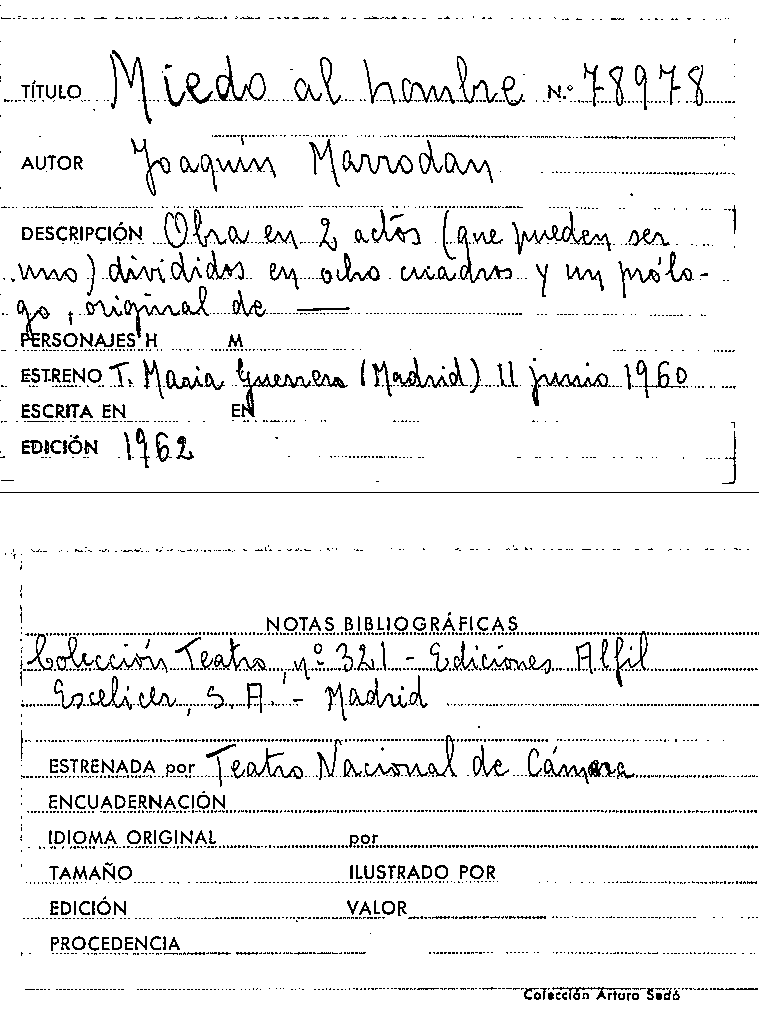 TÍTULO Miedo al hombre N.º 78978
AUTOR Joaquín Marrodan
DESCRIPCIÓN Obra en 2 actos (que pueden ser
uno) divididos en ocho cuadros y un prólo-
go, original de —
PERSONAJES H M
ESTRENO T. Maria Guerrero (Madrid) 11 junio 1960
ESCRITA EN EN
EDICIÓN 1962
NOTAS BIBLIOGRÁFICAS
Colección Teatro, nº 321 - Ediciones Alfil
Escelicer, S. A. - Madrid
ESTRENADA por Teatro Nacional de Cámara
ENCUADERNACIÓN
IDIOMA ORIGINAL por
TAMAÑO ILUSTRADO POR
EDICIÓN VALOR
PROCEDENCIA
Colección Arturo Sedó